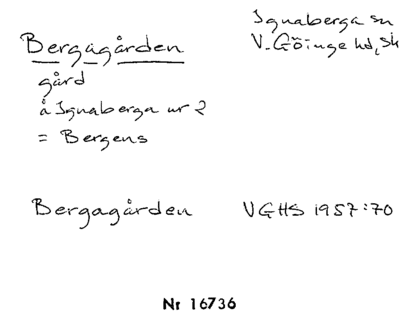 Bergagården
Ignaberga sn
V. Göinge hd, Sk
gård
å Ignaberga nr 2
= Bergens
Bergagården VGHS 1957:70
Nr 16736